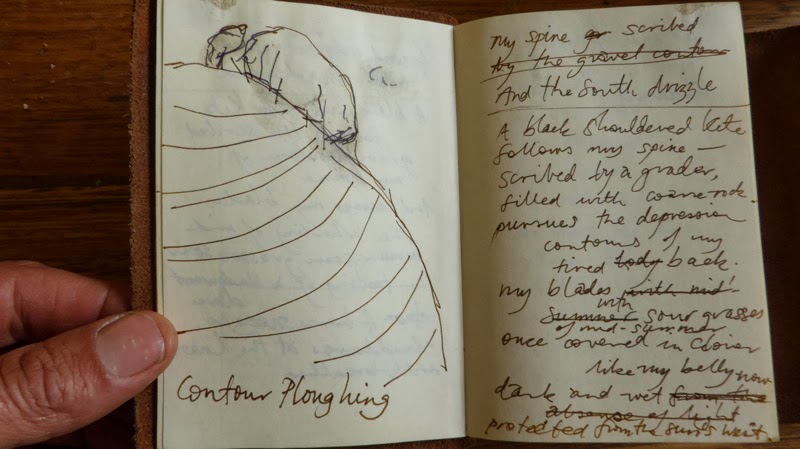 Contour Ploughing
my spine go scribed
by the gravel contour
And the South drizzle
A black shouldered kite
follows my spine —
scribed by a grader,
filled with coarse rock.
pursues the depression
contours of my
tired body back.
my blades with mid
with
summer sour grasses
of mid-summer
once covered in clover
like my belly now
dark and wet from the
absence of light
protected from the sun's heat.